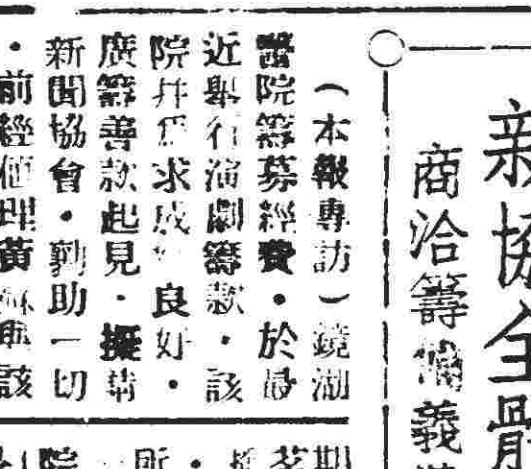 新協全體
商洽籌備義
（本報專訪）鏡湖
醫院籌募經費・於最
近舉行演劇籌款・該
院并為求成 良好・
廣籌善款起見・擬請
新聞協會・勷助一切
・前經值理黃 與該
期
院 所・